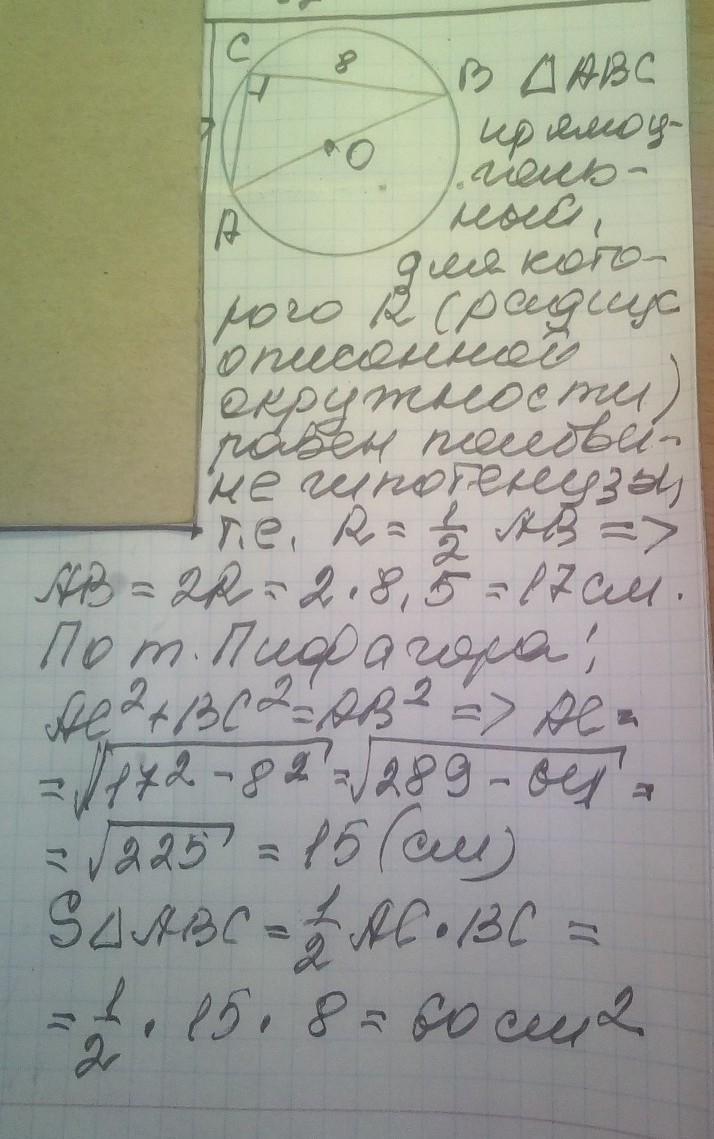 C 8
B △ABC
O
A
прямоу-
голь-
ный,
для кото-
рого R (радиус
описанной
окружности)
равен полови-
не гипотенузы,
т.е. R = 1/2 AB =>
AB = 2R = 2 · 8,5 = 17 см.
По т. Пифагора:
AC² + BC² = AB² => AC =
= √17² - 8² = √289 - 64 =
= √225 = 15 (см)
S△ABC = 1/2 AC · BC =
= 1/2 · 15 · 8 = 60 см²